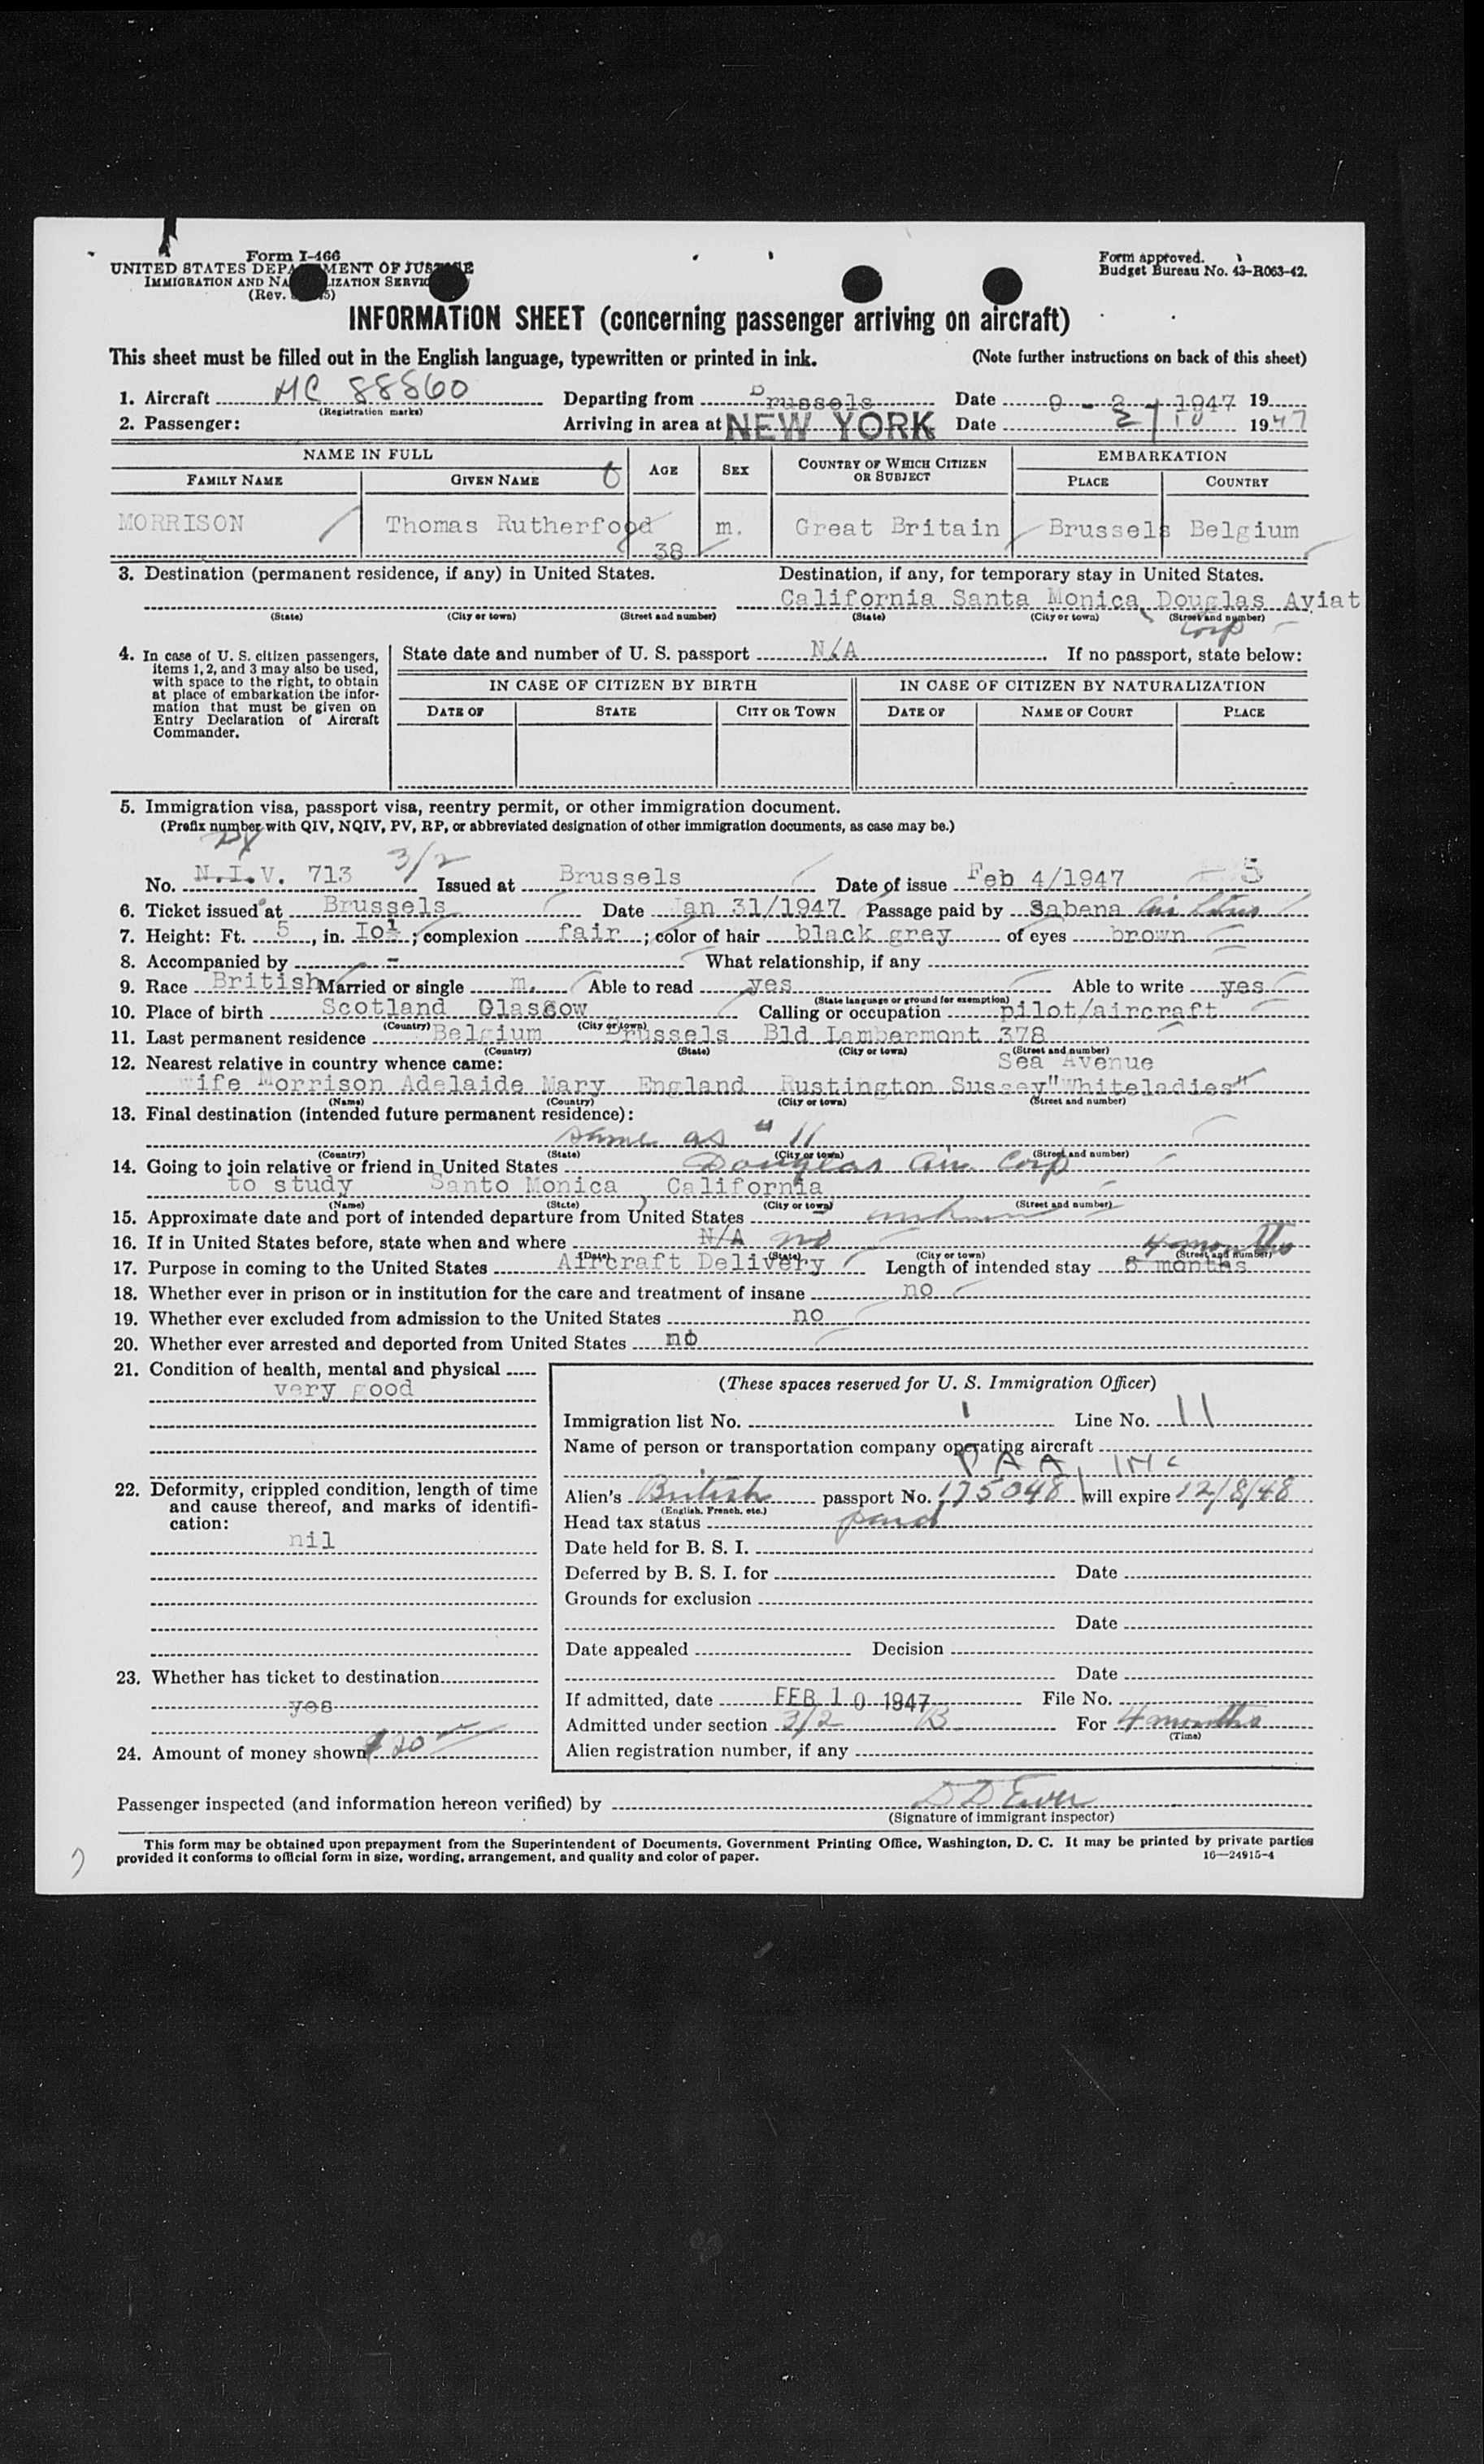 Form I-466
UNITED STATES DEPARTMENT OF JUSTICE
IMMIGRATION AND NATURALIZATION SERVICE
(Rev.
Form approved.
Budget Bureau No. 43-R063-42.
INFORMATION SHEET (concerning passenger arriving on aircraft)
This sheet must be filled out in the English language, typewritten or printed in ink. (Note further instructions on back of this sheet)
1. Aircraft 88860 Departing from Brussels Date 9 - 2 1947 19
(Registration marks)
2. Passenger: Arriving in area at NEW YORK Date 2/10 1947
NAME IN FULL AGE SEX COUNTRY OF WHICH CITIZEN OR SUBJECT EMBARKATION
FAMILY NAME GIVEN NAME PLACE COUNTRY
MORRISON Thomas Rutherfood 38 m. Great Britain Brussels Belgium
3. Destination (permanent residence, if any) in United States. Destination, if any, for temporary stay in United States.
California Santa Monica Douglas Aviat
Corp
(State) (City or town) (Street and number) (State) (City or town) (Street and number)
4. In case of U. S. citizen passengers, items 1, 2, and 3 may also be used, with space to the right, to obtain at place of embarkation the information that must be given on Entry Declaration of Aircraft Commander.
State date and number of U. S. passport N/A If no passport, state below:
IN CASE OF CITIZEN BY BIRTH IN CASE OF CITIZEN BY NATURALIZATION
DATE OF STATE CITY OR TOWN DATE OF NAME OF COURT PLACE
5. Immigration visa, passport visa, reentry permit, or other immigration document.
(Prefix number with QIV, NQIV, PV, RP, or abbreviated designation of other immigration documents, as case may be.)
No. N.I.V. 713 3/2 Issued at Brussels Date of issue Feb 4/1947 5
6. Ticket issued at Brussels Date Jan 31/1947 Passage paid by Sabena Air Lines
7. Height: Ft. 5, in. Io½; complexion fair; color of hair black grey of eyes brown
8. Accompanied by - What relationship, if any
9. Race British Married or single m. Able to read yes Able to write yes
(State language or ground for exemption)
10. Place of birth Scotland Glasgow Calling or occupation pilot/aircraft
(Country) (City or town)
11. Last permanent residence Belgium Brussels Bld Lambermont 378
(Country) (State) (City or town) (Street and number)
12. Nearest relative in country whence came: Sea Avenue
wife Morrison Adelaide Mary England Rustington Sussey "Whiteladies"
(Name) (Country) (City or town) (Street and number)
13. Final destination (intended future permanent residence):
same as # 11
(Country) (State) (City or town) (Street and number)
14. Going to join relative or friend in United States Douglas Air. Corp
to study Santo Monica, California
(Name) (State) (City or town) (Street and number)
15. Approximate date and port of intended departure from United States unknown
16. If in United States before, state when and where N/A no
(Date) (State) (City or town) (Street and number)
4 months
17. Purpose in coming to the United States Aircraft Delivery Length of intended stay 6 months
18. Whether ever in prison or in institution for the care and treatment of insane no
19. Whether ever excluded from admission to the United States no
20. Whether ever arrested and deported from United States no
21. Condition of health, mental and physical
very good
22. Deformity, crippled condition, length of time and cause thereof, and marks of identification:
nil
23. Whether has ticket to destination
yes
24. Amount of money shown $20
(These spaces reserved for U. S. Immigration Officer)
Immigration list No. 1 Line No. 11
Name of person or transportation company operating aircraft
PAA, INC
Alien's British passport No. 175048 will expire 12/8/48
(English, French, etc.)
Head tax status paid
Date held for B. S. I.
Deferred by B. S. I. for Date
Grounds for exclusion
Date
Date appealed Decision
Date
If admitted, date FEB 10 1947 File No.
Admitted under section 3/2 B For 4 months
(Time)
Alien registration number, if any
Passenger inspected (and information hereon verified) by D D Ewer
(Signature of immigrant inspector)
This form may be obtained upon prepayment from the Superintendent of Documents, Government Printing Office, Washington, D. C. It may be printed by private parties
provided it conforms to official form in size, wording, arrangement, and quality and color of paper. 16—24915-4